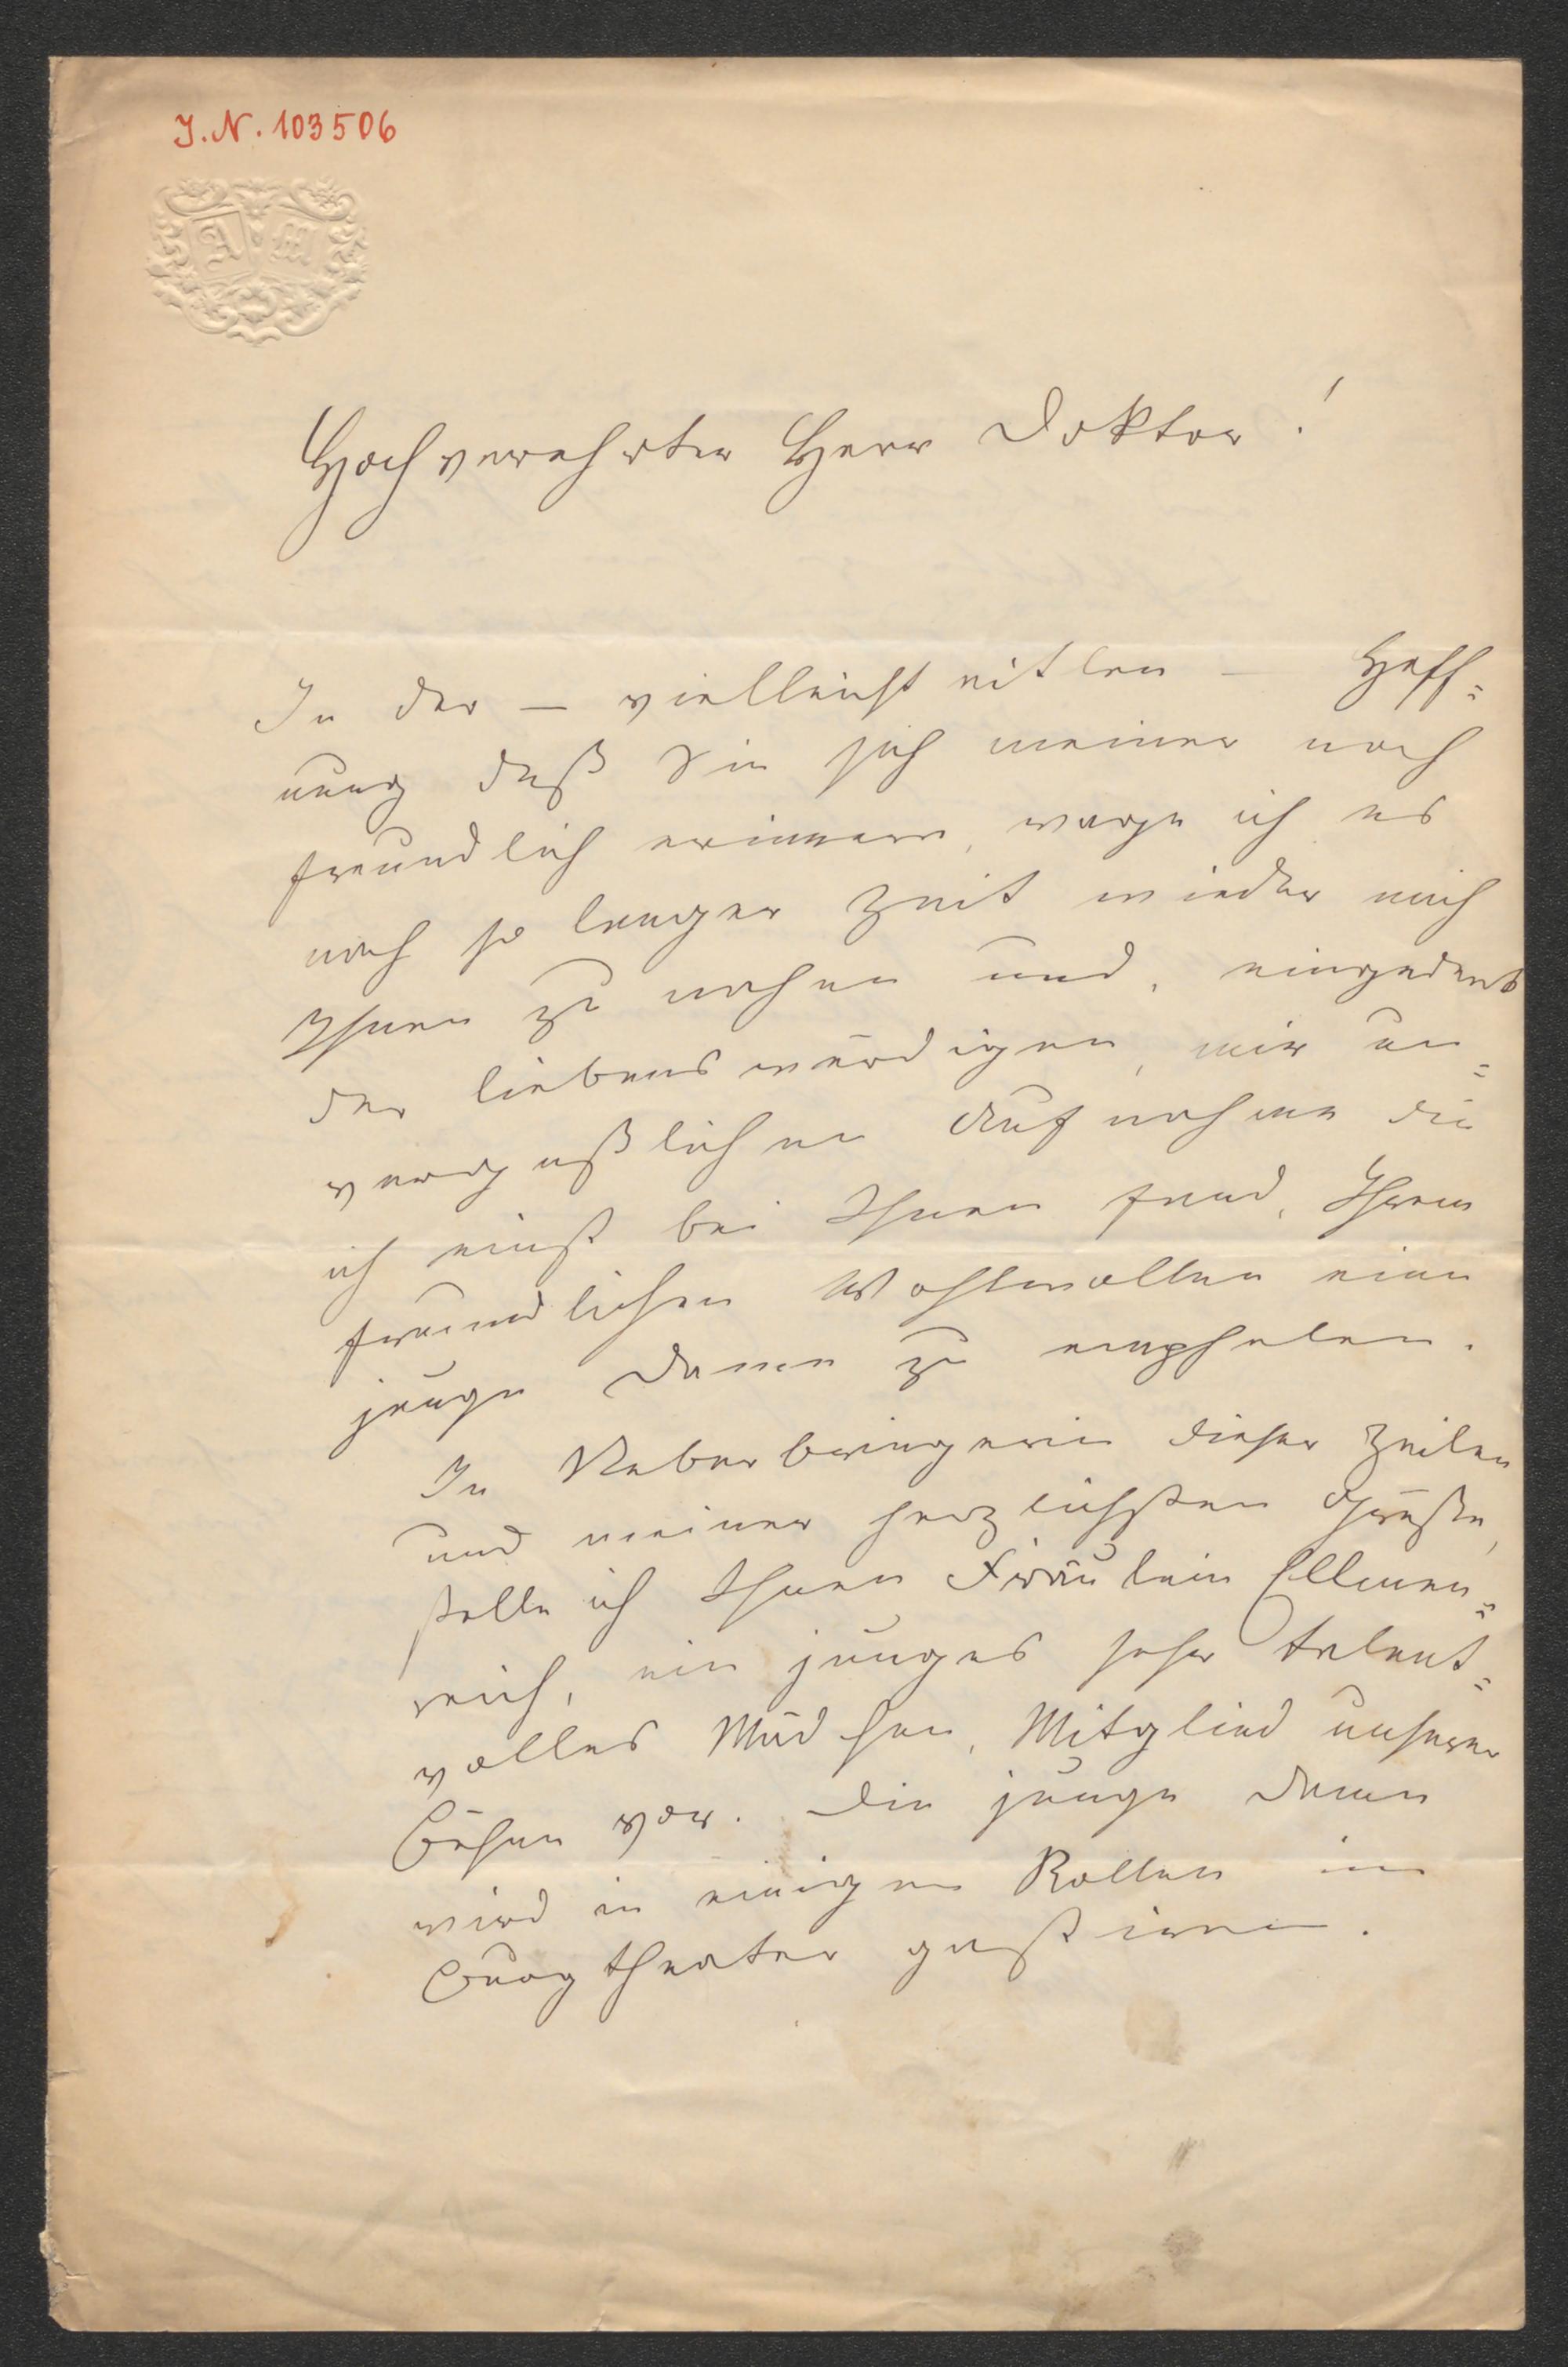 J.N. 103506
A M
Hochverehrter Herr Doktor!
In der – vielleicht eitlen – Hoff=
nung daß Sie sich meiner noch
freundlich erinnern, wage ich es
nach so langer Zeit wieder mich
Ihnen zu nahen und, eingedenk
der liebenswürdigen, mir un=
vergeßlichen Aufnahme die
ich einst bei Ihnen fand, Ihrem
freundlichen Wohlwollen eine
junge Dame zu empfehlen.
In Ueberbringerin dieser Zeilen
und meiner herzlichsten Grüße,
stelle ich Ihnen Fräulein Ellmen=
reich, ein junges sehr talent=
volles Mädchen, Mitglied unserer
Bühne vor. Die junge Dame
wird in einigen Rollen im
Burgtheater gastiren.